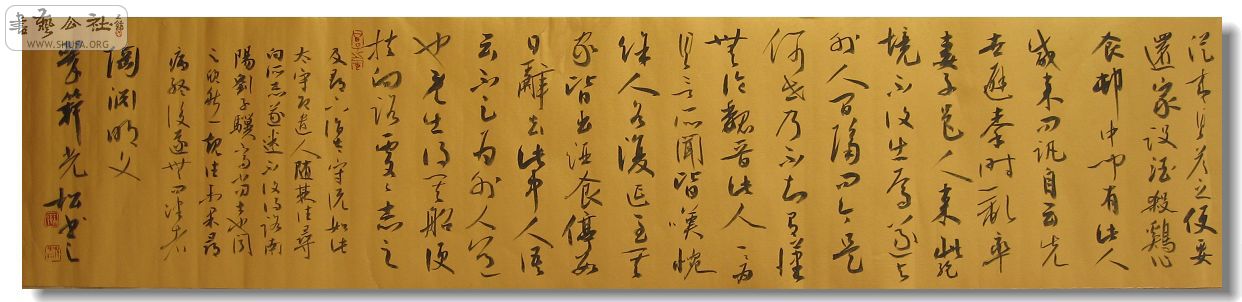 書藝公社
WWW.SHUFA.ORG
從來具答之便要
還家設酒殺鷄作
食村中聞有此人
咸来问訊自云先
世避秦時亂率
妻子邑人来此絕
境不復出焉遂与
外人間隔问今是
何世乃不知有漢
無論魏晉此人一一為
具言所聞皆嘆惋
餘人各復延至其
家皆出酒食停數
日辭去此中人語
云不足為外人道
也既出得其船便
扶向路處々志之
及郡下詣太守說如此
太守即遣人隨其往尋
向所志遂迷不復得路南
陽劉子驥高尚士也聞
之欣然規往未果尋
病終後遂無问津者
陶淵明文
光松書之